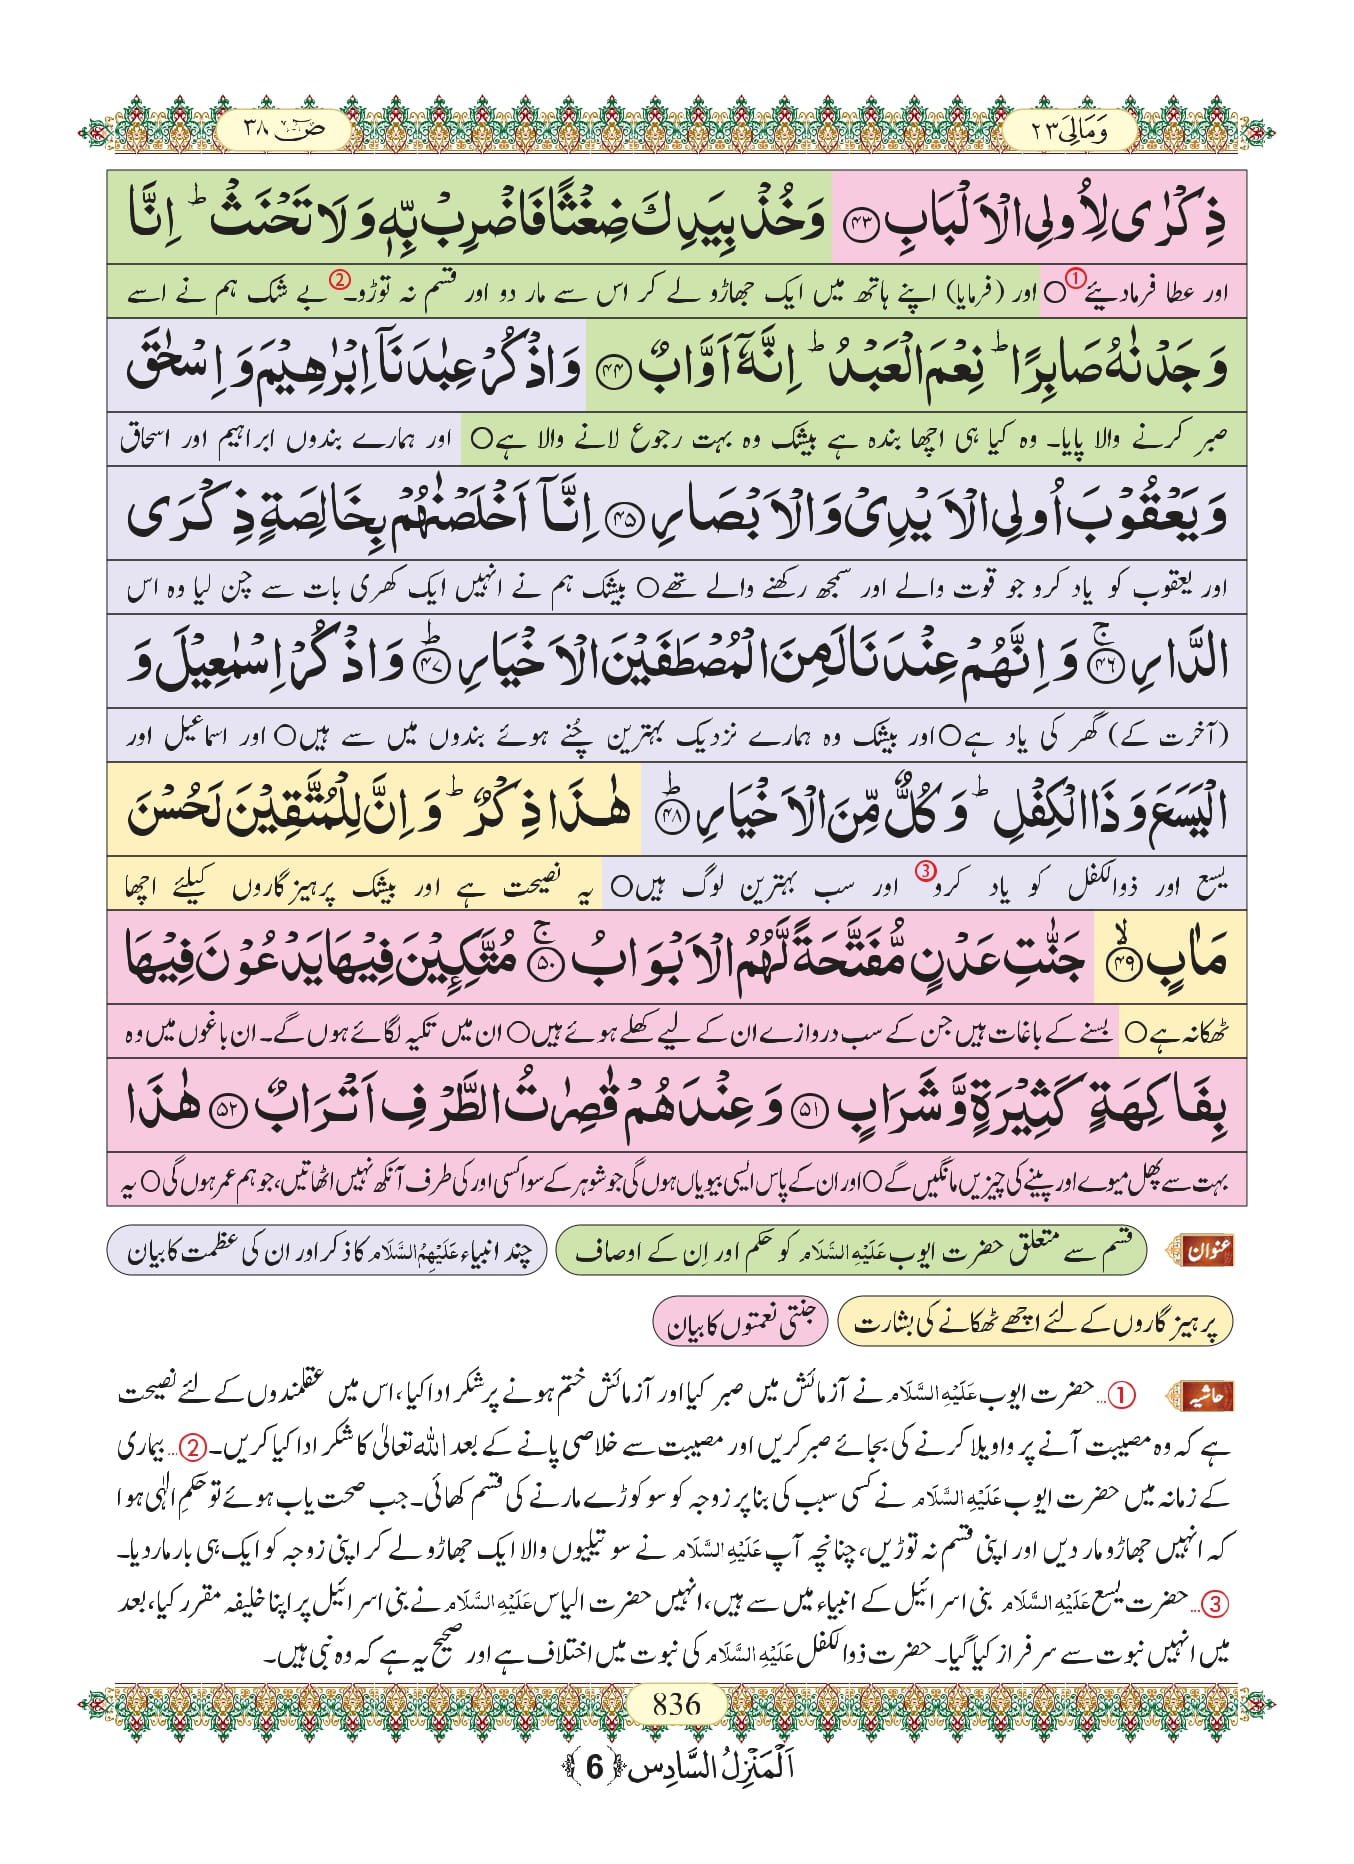 وَمَالِیَ ۲۳
صٓ ۳۸
ذِكْرٰى لِاُولِی الْاَلْبَابِ ﴿۴۳﴾ وَخُذْ بِیَدِكَ ضِغْثًا فَاضْرِبْ بِّهٖ وَلَا تَحْنَثْ ؕ اِنَّا
اور عطا فرمادیئے①○ اور (فرمایا) اپنے ہاتھ میں ایک جھاڑو لے کر اس سے مار دو اور قسم نہ توڑو۔② بے شک ہم نے اسے
وَجَدْنٰهُ صَابِرًا ؕ نِعْمَ الْعَبْدُ ؕ اِنَّهٗۤ اَوَّابٌ ﴿۴۴﴾ وَاذْكُرْ عِبٰدَنَاۤ اِبْرٰهِیْمَ وَاِسْحٰقَ
صبر کرنے والا پایا۔ وہ کیا ہی اچھا بندہ ہے بیشک وہ بہت رجوع لانے والا ہے○ اور ہمارے بندوں ابراہیم اور اسحاق
وَیَعْقُوْبَ اُولِی الْاَیْدِیْ وَالْاَبْصَارِ ﴿۴۵﴾ اِنَّاۤ اَخْلَصْنٰهُمْ بِخَالِصَةٍ ذِكْرَى
اور یعقوب کو یاد کرو جو قوت والے اور سمجھ رکھنے والے تھے○ بیشک ہم نے انہیں ایک کھری بات سے چن لیا وہ اس
الدَّارِ ﴿۴۶﴾ۚ وَاِنَّهُمْ عِنْدَنَا لَمِنَ الْمُصْطَفَیْنَ الْاَخْیَارِ ﴿۴۷﴾ؕ وَاذْكُرْ اِسْمٰعِیْلَ وَ
(آخرت کے) گھر کی یاد ہے○ اور بیشک وہ ہمارے نزدیک بہترین چُنے ہوئے بندوں میں سے ہیں○ اور اسماعیل اور
الْیَسَعَ وَذَا الْكِفْلِ ؕ وَكُلٌّ مِّنَ الْاَخْیَارِ ﴿۴۸﴾ؕ هٰذَا ذِكْرٌ ؕ وَاِنَّ لِلْمُتَّقِیْنَ لَحُسْنَ
یسع اور ذوالکفل کو یاد کرو③ اور سب بہترین لوگ ہیں○ یہ نصیحت ہے اور بیشک پرہیزگاروں کیلئے اچھا
مَاٰبٍ ﴿۴۹﴾ۙ جَنّٰتِ عَدْنٍ مُّفَتَّحَةً لَّهُمُ الْاَبْوَابُ ﴿۵۰﴾ۚ مُتَّكِـِٕیْنَ فِیْهَا یَدْعُوْنَ فِیْهَا
ٹھکانہ ہے○ بسنے کے باغات ہیں جن کے سب دروازے ان کے لیے کھلے ہوئے ہیں○ ان میں تکیہ لگائے ہوں گے۔ ان باغوں میں وہ
بِفَاكِهَةٍ كَثِیْرَةٍ وَّشَرَابٍ ﴿۵۱﴾ وَعِنْدَهُمْ قٰصِرٰتُ الطَّرْفِ اَتْرَابٌ ﴿۵۲﴾ هٰذَا
بہت سے پھل میوے اور پینے کی چیزیں مانگیں گے○ اور ان کے پاس ایسی بیویاں ہوں گی جو شوہر کے سوا کسی اور کی طرف آنکھ نہیں اٹھاتیں، جو ہم عمر ہوں گی○ یہ
عنوان قسم سے متعلق حضرت ایوب عَلَیْهِ السَّلَام کو حکم اور اِن کے اوصاف چند انبیاء عَلَیْهِمُ السَّلَام کا ذکر اور ان کی عظمت کا بیان
پرہیزگاروں کے لئے اچھے ٹھکانے کی بشارت جنتی نعمتوں کا بیان
حاشیہ ①... حضرت ایوب عَلَیْهِ السَّلَام نے آزمائش میں صبر کیا اور آزمائش ختم ہونے پر شکر ادا کیا، اس میں عقلمندوں کے لئے نصیحت
ہے کہ وہ مصیبت آنے پر واویلا کرنے کی بجائے صبر کریں اور مصیبت سے خلاصی پانے کے بعد اللہ تعالیٰ کا شکر ادا کیا کریں۔ ②... بیماری
کے زمانہ میں حضرت ایوب عَلَیْهِ السَّلَام نے کسی سبب کی بنا پر زوجہ کو سو کوڑے مارنے کی قسم کھائی۔ جب صحت یاب ہوئے تو حکمِ الٰہی ہوا
کہ انہیں جھاڑو مار دیں اور اپنی قسم نہ توڑیں، چنانچہ آپ عَلَیْهِ السَّلَام نے سو تیلیوں والا ایک جھاڑو لے کر اپنی زوجہ کو ایک ہی بار مار دیا۔
③... حضرت یسع عَلَیْهِ السَّلَام بنی اسرائیل کے انبیاء میں سے ہیں، انہیں حضرت الیاس عَلَیْهِ السَّلَام نے بنی اسرائیل پر اپنا خلیفہ مقرر کیا، بعد
میں انہیں نبوت سے سرفراز کیا گیا۔ حضرت ذوالکفل عَلَیْهِ السَّلَام کی نبوت میں اختلاف ہے اور صحیح یہ ہے کہ وہ نبی ہیں۔
836
اَلْمَنْزِلُ السَّادِس ﴿6﴾